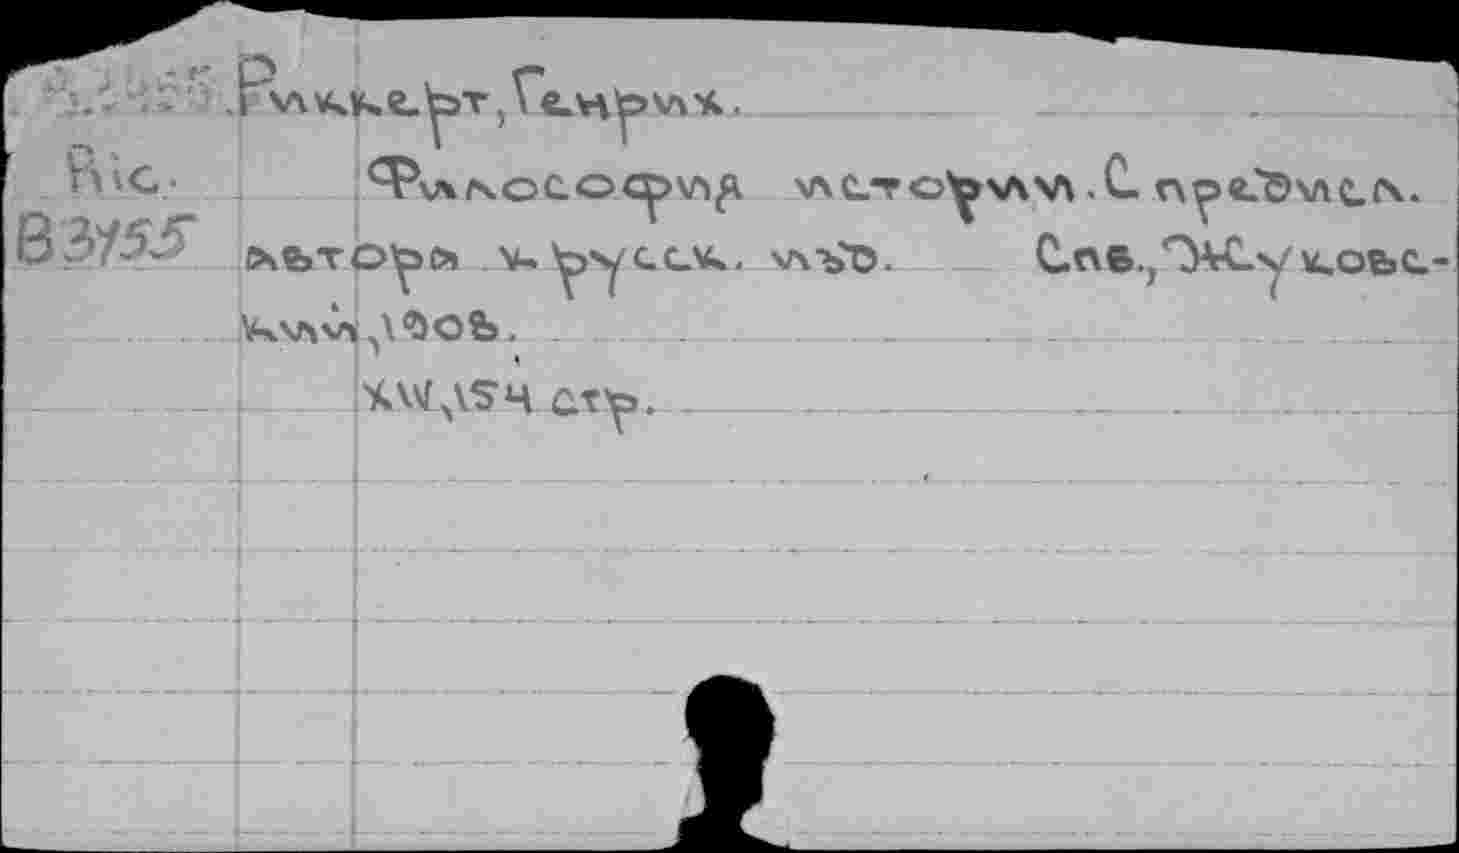 Риккерт, Генрих.
Рис. Философия истории. С предисл.
В3755 автора к русск. изд. Спб., Жуковс-
кий, 1908.
XIV, 154 стр.